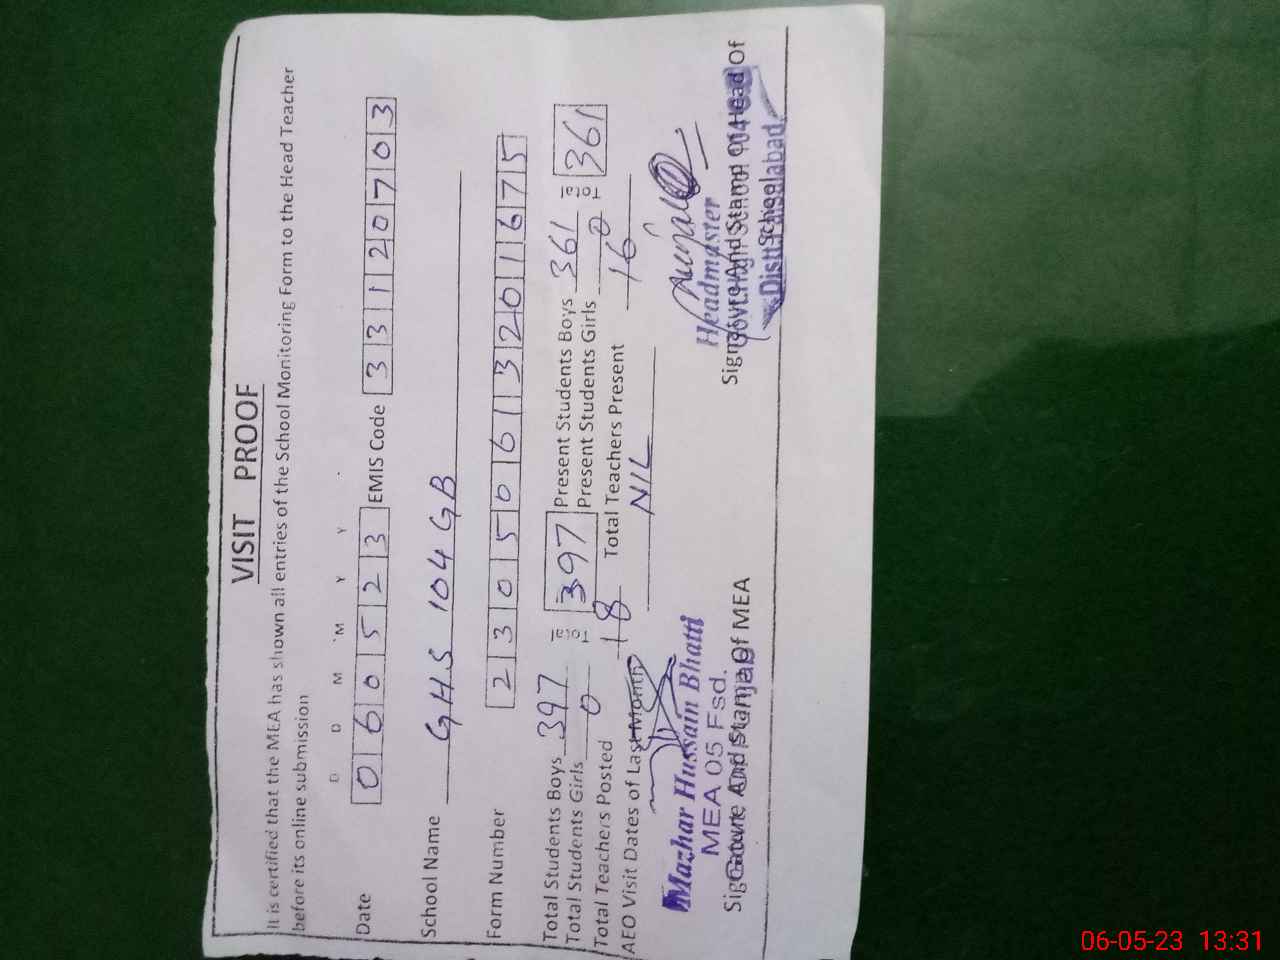 VISIT PROOF
It is certified that the MEA has shown all entries of the School Monitoring Form to the Head Teacher
before its online submission
D D M M Y Y
Date 060523 EMIS Code 33120703
School Name GHS 104 GB
Form Number 23050613201675
Total Students Boys 397 Total 397 Present Students Boys 361 Total 361
Total Students Girls 0 Present Students Girls 0
Total Teachers Posted 18 Total Teachers Present 16
AEO Visit Dates of Last Month NIL
Mazhar Hussain Bhatti
MEA 05 Fsd.
Signature And Stamp Of MEA
Headmaster
Signature And Stamp Of Head Of
School
Distt. Faisalabad
06-05-23 13:31